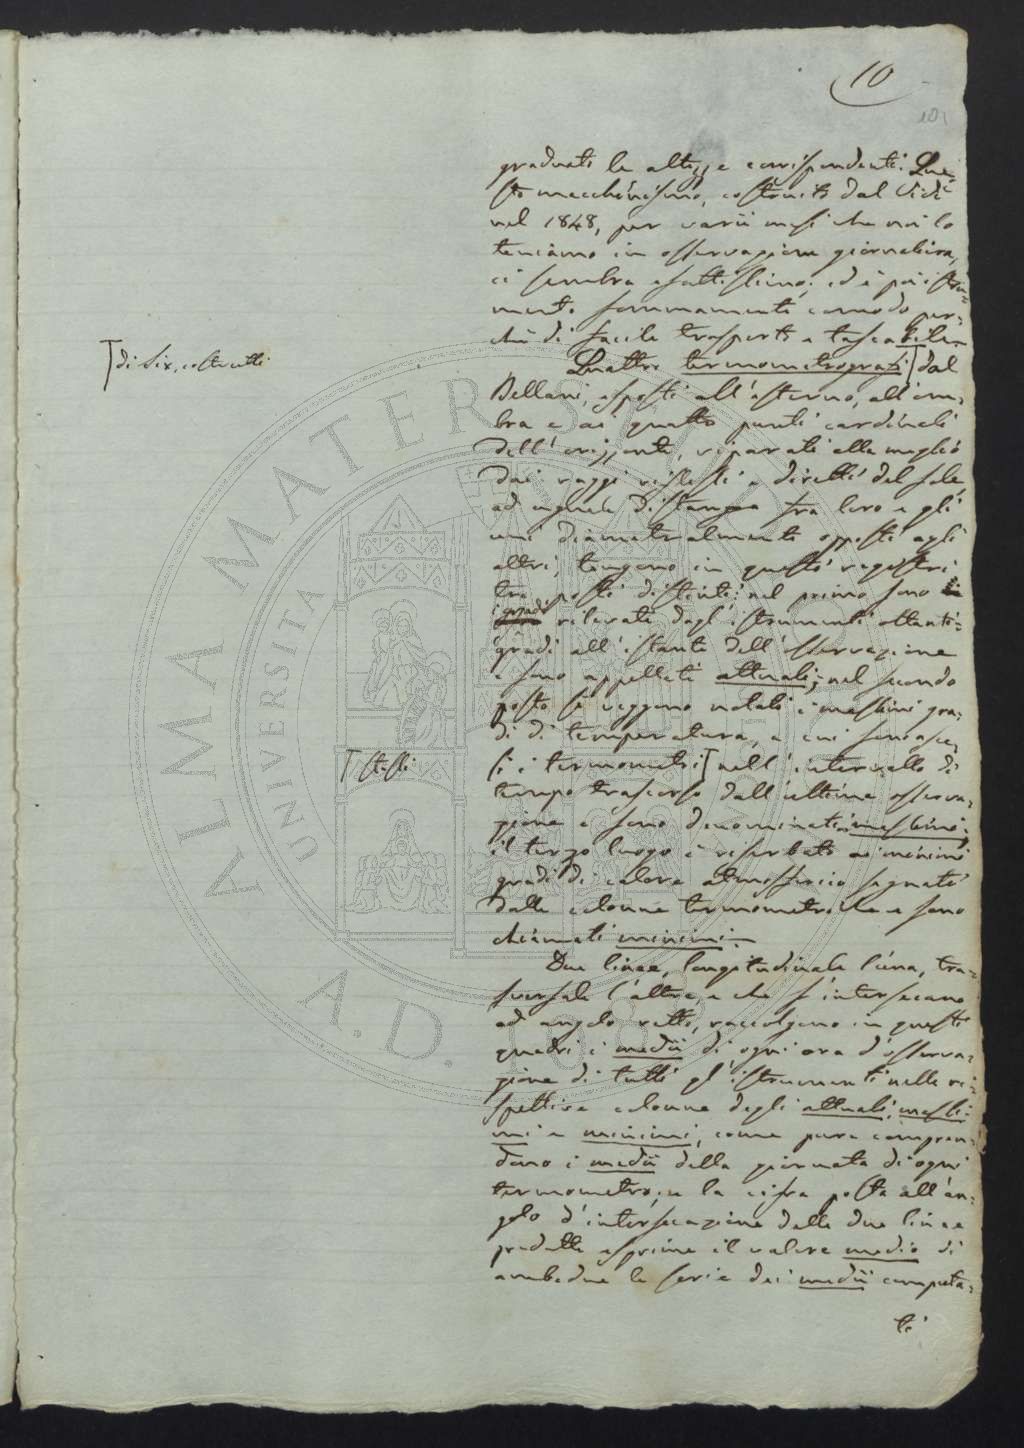 10
101
graduati le altezze corrispondenti. Que-
sto macchinismo, costruito dal Vidi
nel 1848, per varii mesi che noi lo
teniamo in osservazione giornaliera,
ci sembra esattissimo; ed è poi istru-
mento sommamente comodo per-
chè di facile trasporto e tascabile.
Quattro termometrografi [dal
[di Six, costrutti
Bellani, esposti all'esterno, all'om-
bra e ai quattro punti cardinali
dell'orizzonte, riparati alla meglio
dai raggi riflessi e diretti del sole,
ad eguale distanza tra loro e gli
uni diametralmente opposti agli
altri, tengono in questi registri
tre posti distinti: nel primo sono
i gradi rilevati dagl'istrumenti ottanti-
gradi all'istante dell'osservazione
e sono appellati attuali; nel secondo
posto si veggono notati i massimi gra-
di di temperatura, a cui sono asce-
si i termometri [nell'intervallo di
[stessi
tempo trascorso dall'ultima osserva-
zione e sono denominati massimi;
il terzo luogo è riserbato ai minimi
gradi di calore atmosferico segnati
dalle colonne termometriche e sono
chiamati minimi.
Due linee, longitudinale l'una, tra-
sversale l'altra, e che s'intersecano
ad angolo retto, raccolgono in questi
quadri i medii di ogni ora d'osserva-
zione di tutti gl'istrumenti nelle ri-
spettive colonne degli attuali, massi-
mi e minimi, come pure compren-
dono i medii della giornata di ogni
termometro; e la cifra posta all'an-
golo d'intersecazione delle due linee
predette esprime il valore medio di
ambedue le serie dei medii computa-
ti
ALMA MATER STUDIORUM
UNIVERSITA
A.D. 1088